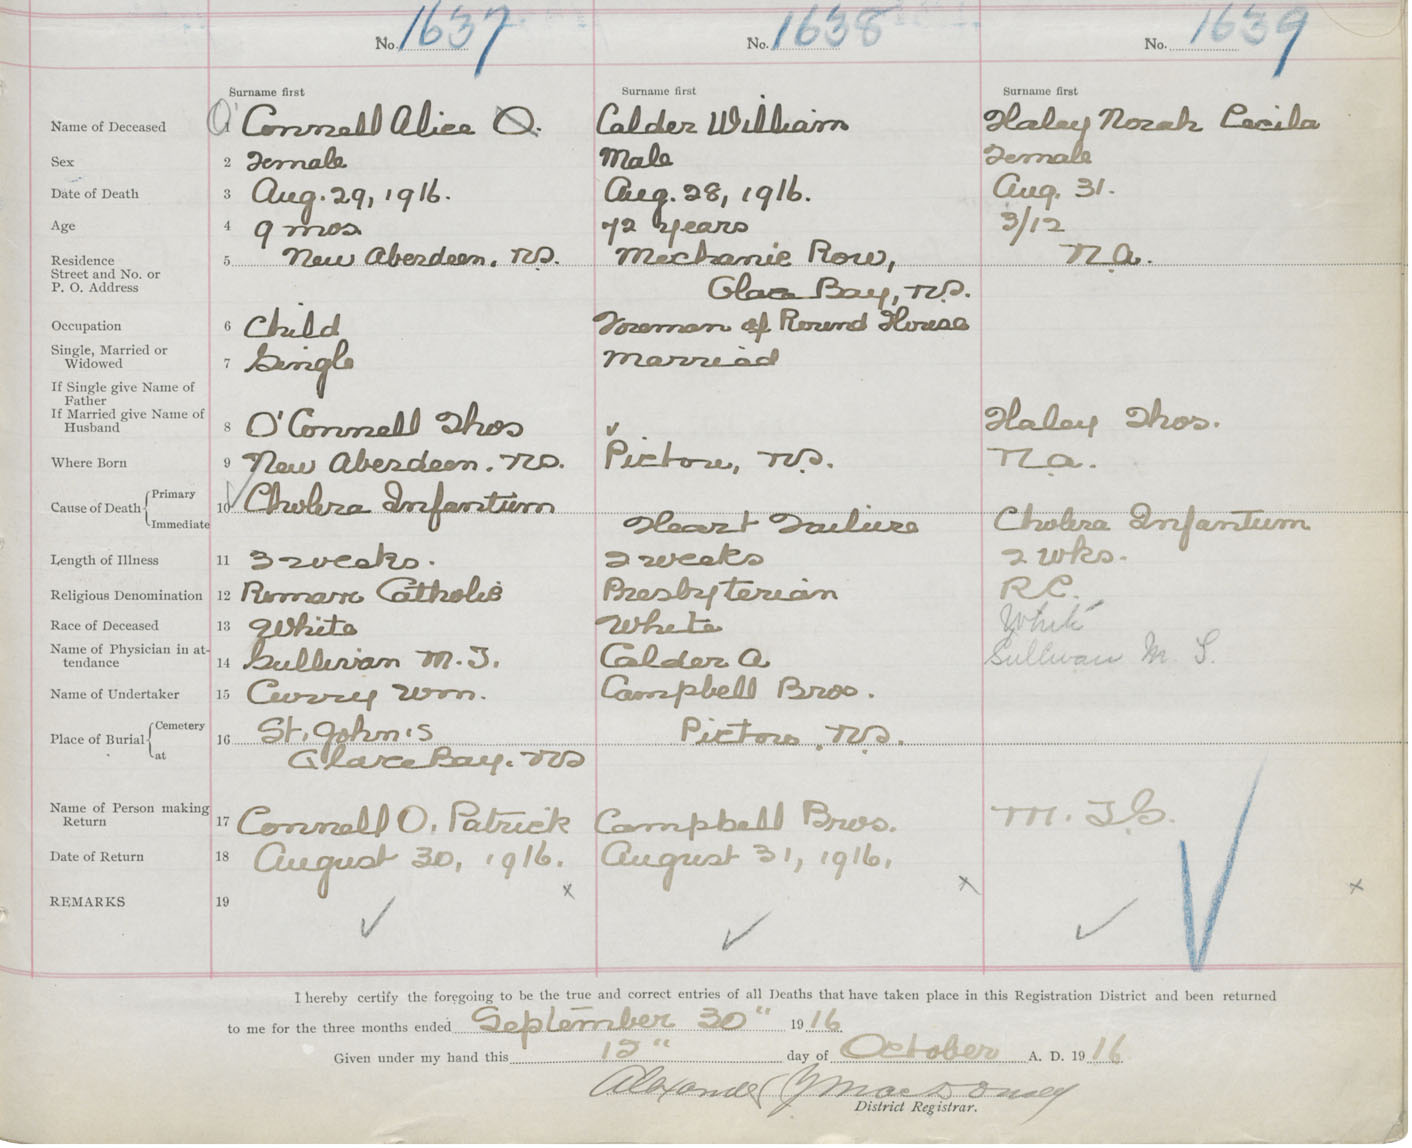 No. 1637 No. 1638 No. 1639
Surname first Surname first Surname first
Name of Deceased 1 O' Connell Alice O. Calder William Haley Norah Cecila
Sex 2 Female Male Female
Date of Death 3 Aug. 29, 1916. Aug. 28, 1916. Aug. 31.
Age 4 9 mos 72 years 3/12
Residence 5 New Aberdeen, N.S. Mechanic Row, N.A.
Street and No. or
P. O. Address Glace Bay, N.S.
Occupation 6 Child Foreman of Round House
Single, Married or
Widowed 7 Single Married
If Single give Name of
Father
If Married give Name of
Husband 8 O'Connell Thos Haley Thos.
Where Born 9 New Aberdeen. NS. Pictou, N.S. N.a.
Cause of Death Primary 10 Cholera Infantum
Immediate Heart Failure Cholera Infantum
Length of Illness 11 3 weeks. 2 weeks 2 wks.
Religious Denomination 12 Roman Catholic Presbyterian R.C.
Race of Deceased 13 White White White
Name of Physician in at-
tendance 14 Sullivan M.T. Calder A Sullivan M T.
Name of Undertaker 15 Curry Wm. Campbell Bros.
Place of Burial Cemetery 16 St. John's Pictou, N.S.
at Glace Bay. NS
Name of Person making
Return 17 Connell O. Patrick Campbell Bros. M. T.S.
Date of Return 18 August 30, 1916. August 31, 1916.
REMARKS 19
I hereby certify the foregoing to be the true and correct entries of all Deaths that have taken place in this Registration District and been returned
to me for the three months ended September 30" 1916
Given under my hand this 12" day of October A. D. 1916
Alexander
District Registrar.